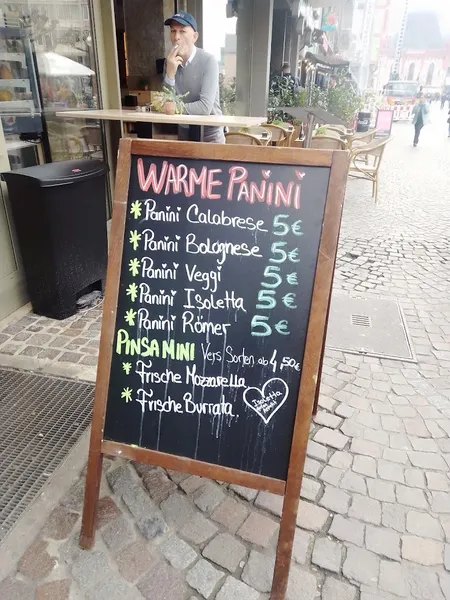 WARME PANINI
* Panini Calabrese 5€
* Panini Bolognese 5€
* Panini Veggi 5€
* Panini Isoletta 5€
* Panini Römer 5€
PINSA MINI Vers. Sorten ab 4,50€
* Frische Mozzarella
* Frische Burrata
Isoletta